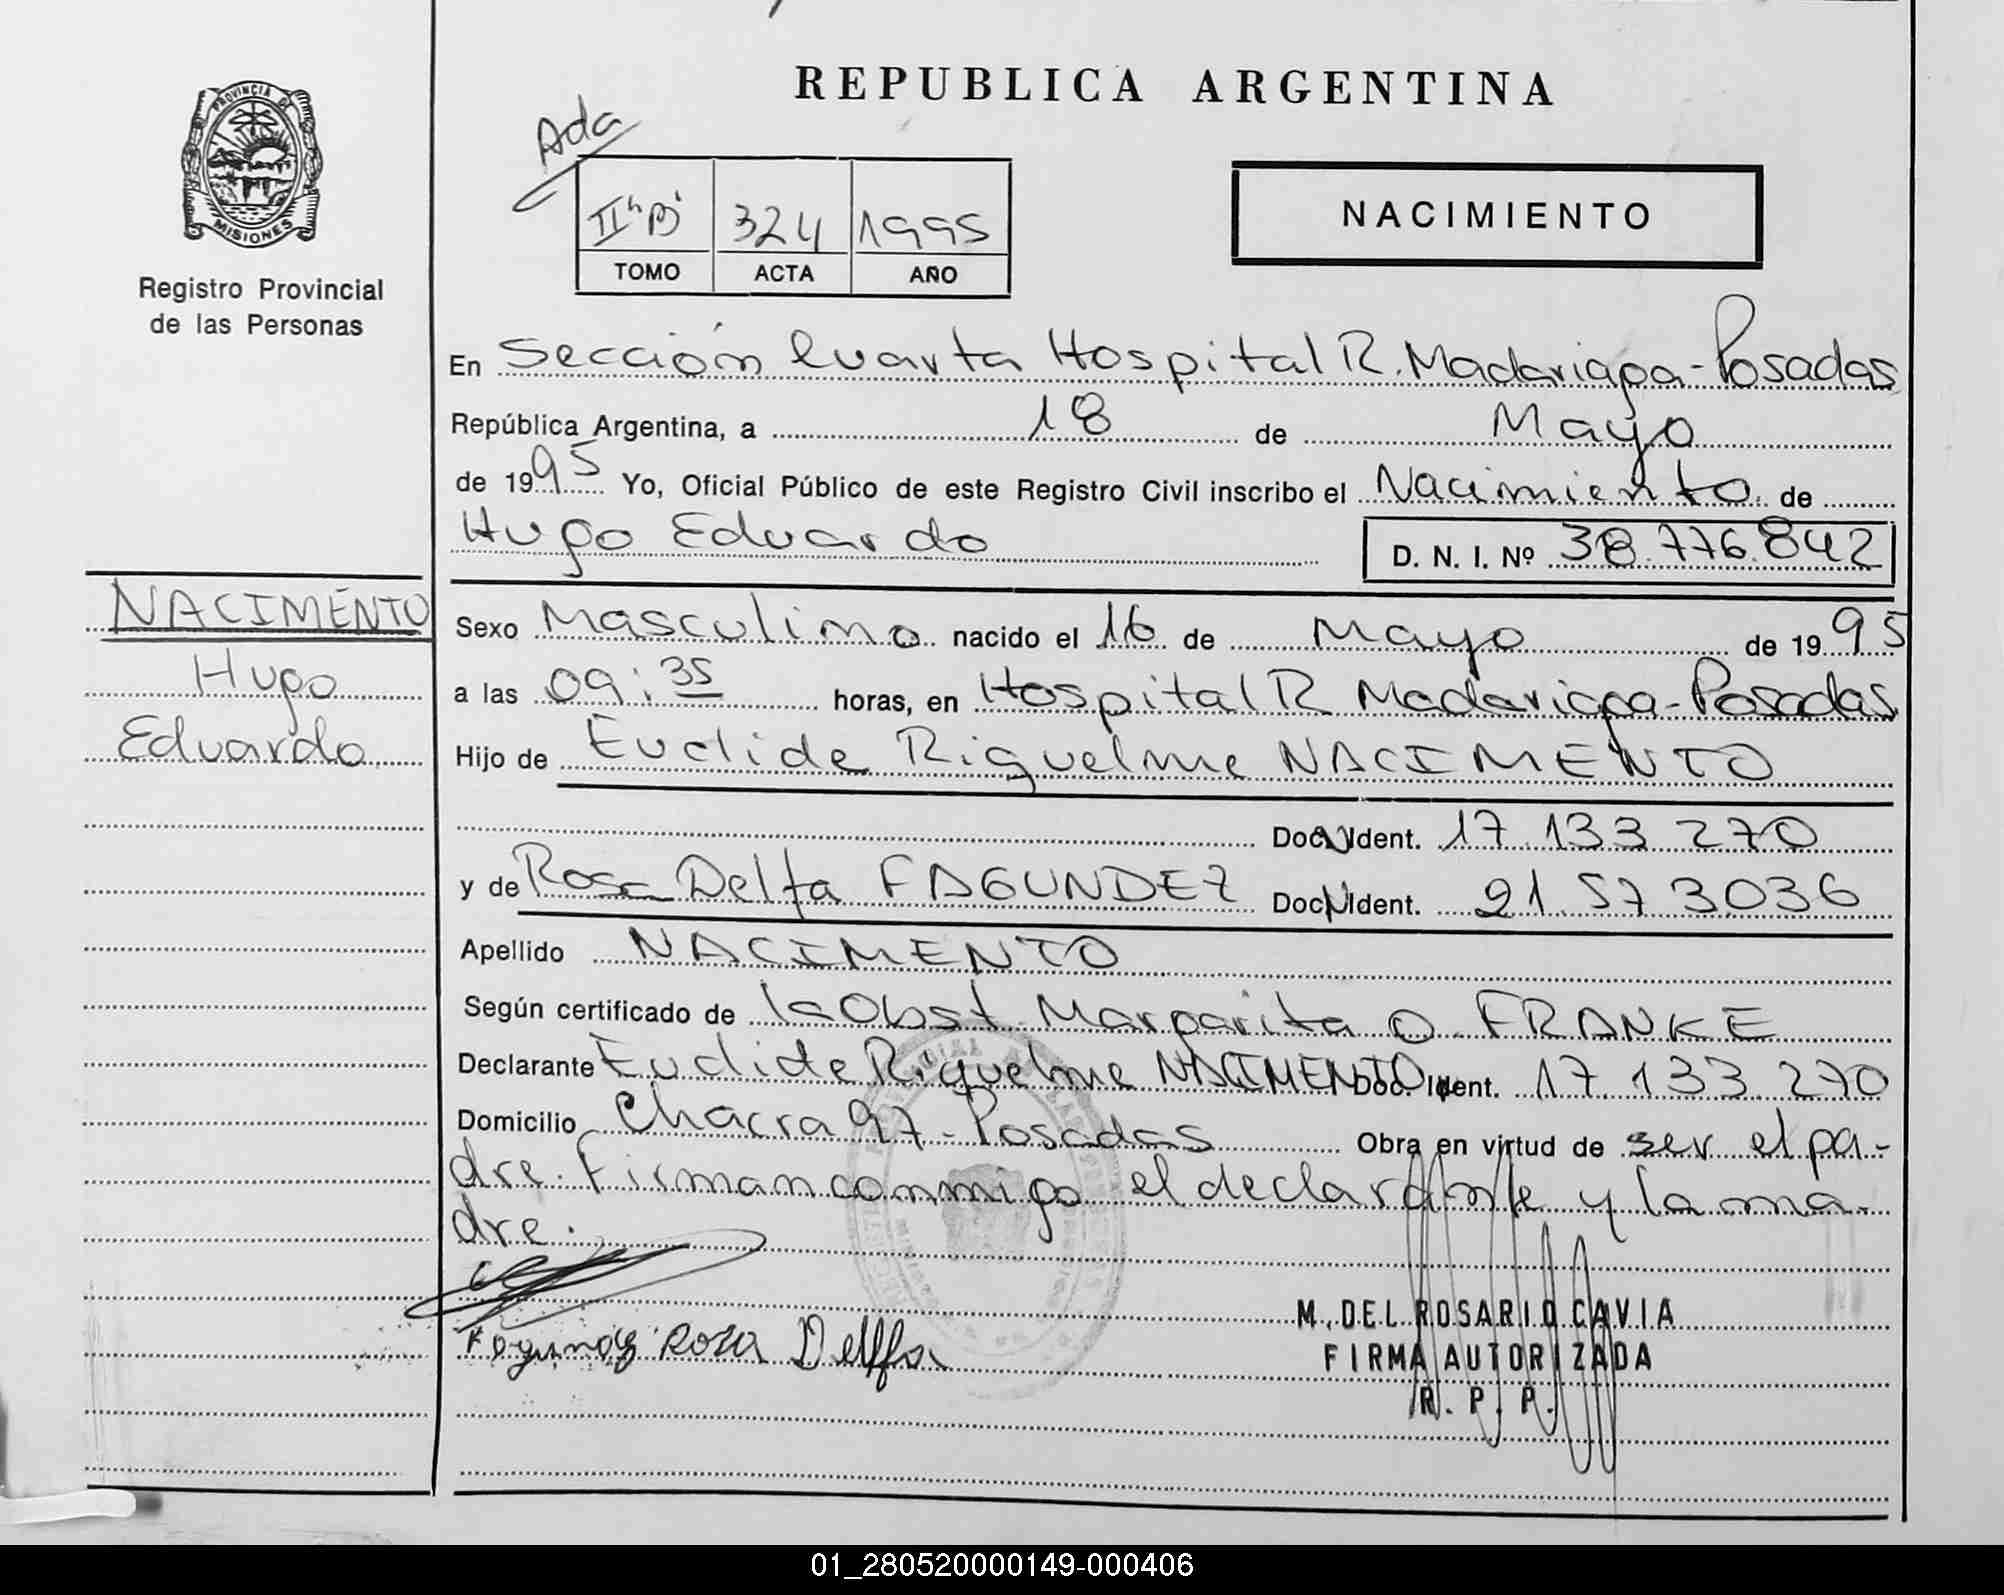 REPUBLICA ARGENTINA
PROVINCIA DE
MISIONES
Registro Provincial
de las Personas
Ada
IIº"B" 324 1995
TOMO ACTA AÑO
NACIMIENTO
En Sección Cuarta Hospital R. Madariaga - Posadas
República Argentina, a 18 de Mayo
de 1995 Yo, Oficial Público de este Registro Civil inscribo el Nacimiento de
Hugo Eduardo D. N. I. Nº 38.776.842
NACIMENTO
Hugo
Eduardo
Sexo Masculino nacido el 16 de Mayo de 1995
a las 09:35 horas, en Hospital R Madariaga - Posadas
Hijo de Euclide Riguelme NACIMENTO
Doc. Ident. 17.133.270
y de Rosa Delfa FAGUNDEZ Doc. Ident. 21.573.036
Apellido NACIMENTO
Según certificado de la Obst. Margarita O. FRANKE
Declarante Euclide Riguelme NACIMENTO Doc. Ident. 17.133.270
Domicilio Chacra 97 - Posadas Obra en virtud de ser el pa-
dre. Firman conmigo el declarante y la ma-
dre.
Rosa Delffa
M. DEL ROSARIO CAVIA
FIRMA AUTORIZADA
R. P. P.
01_280520000149-000406